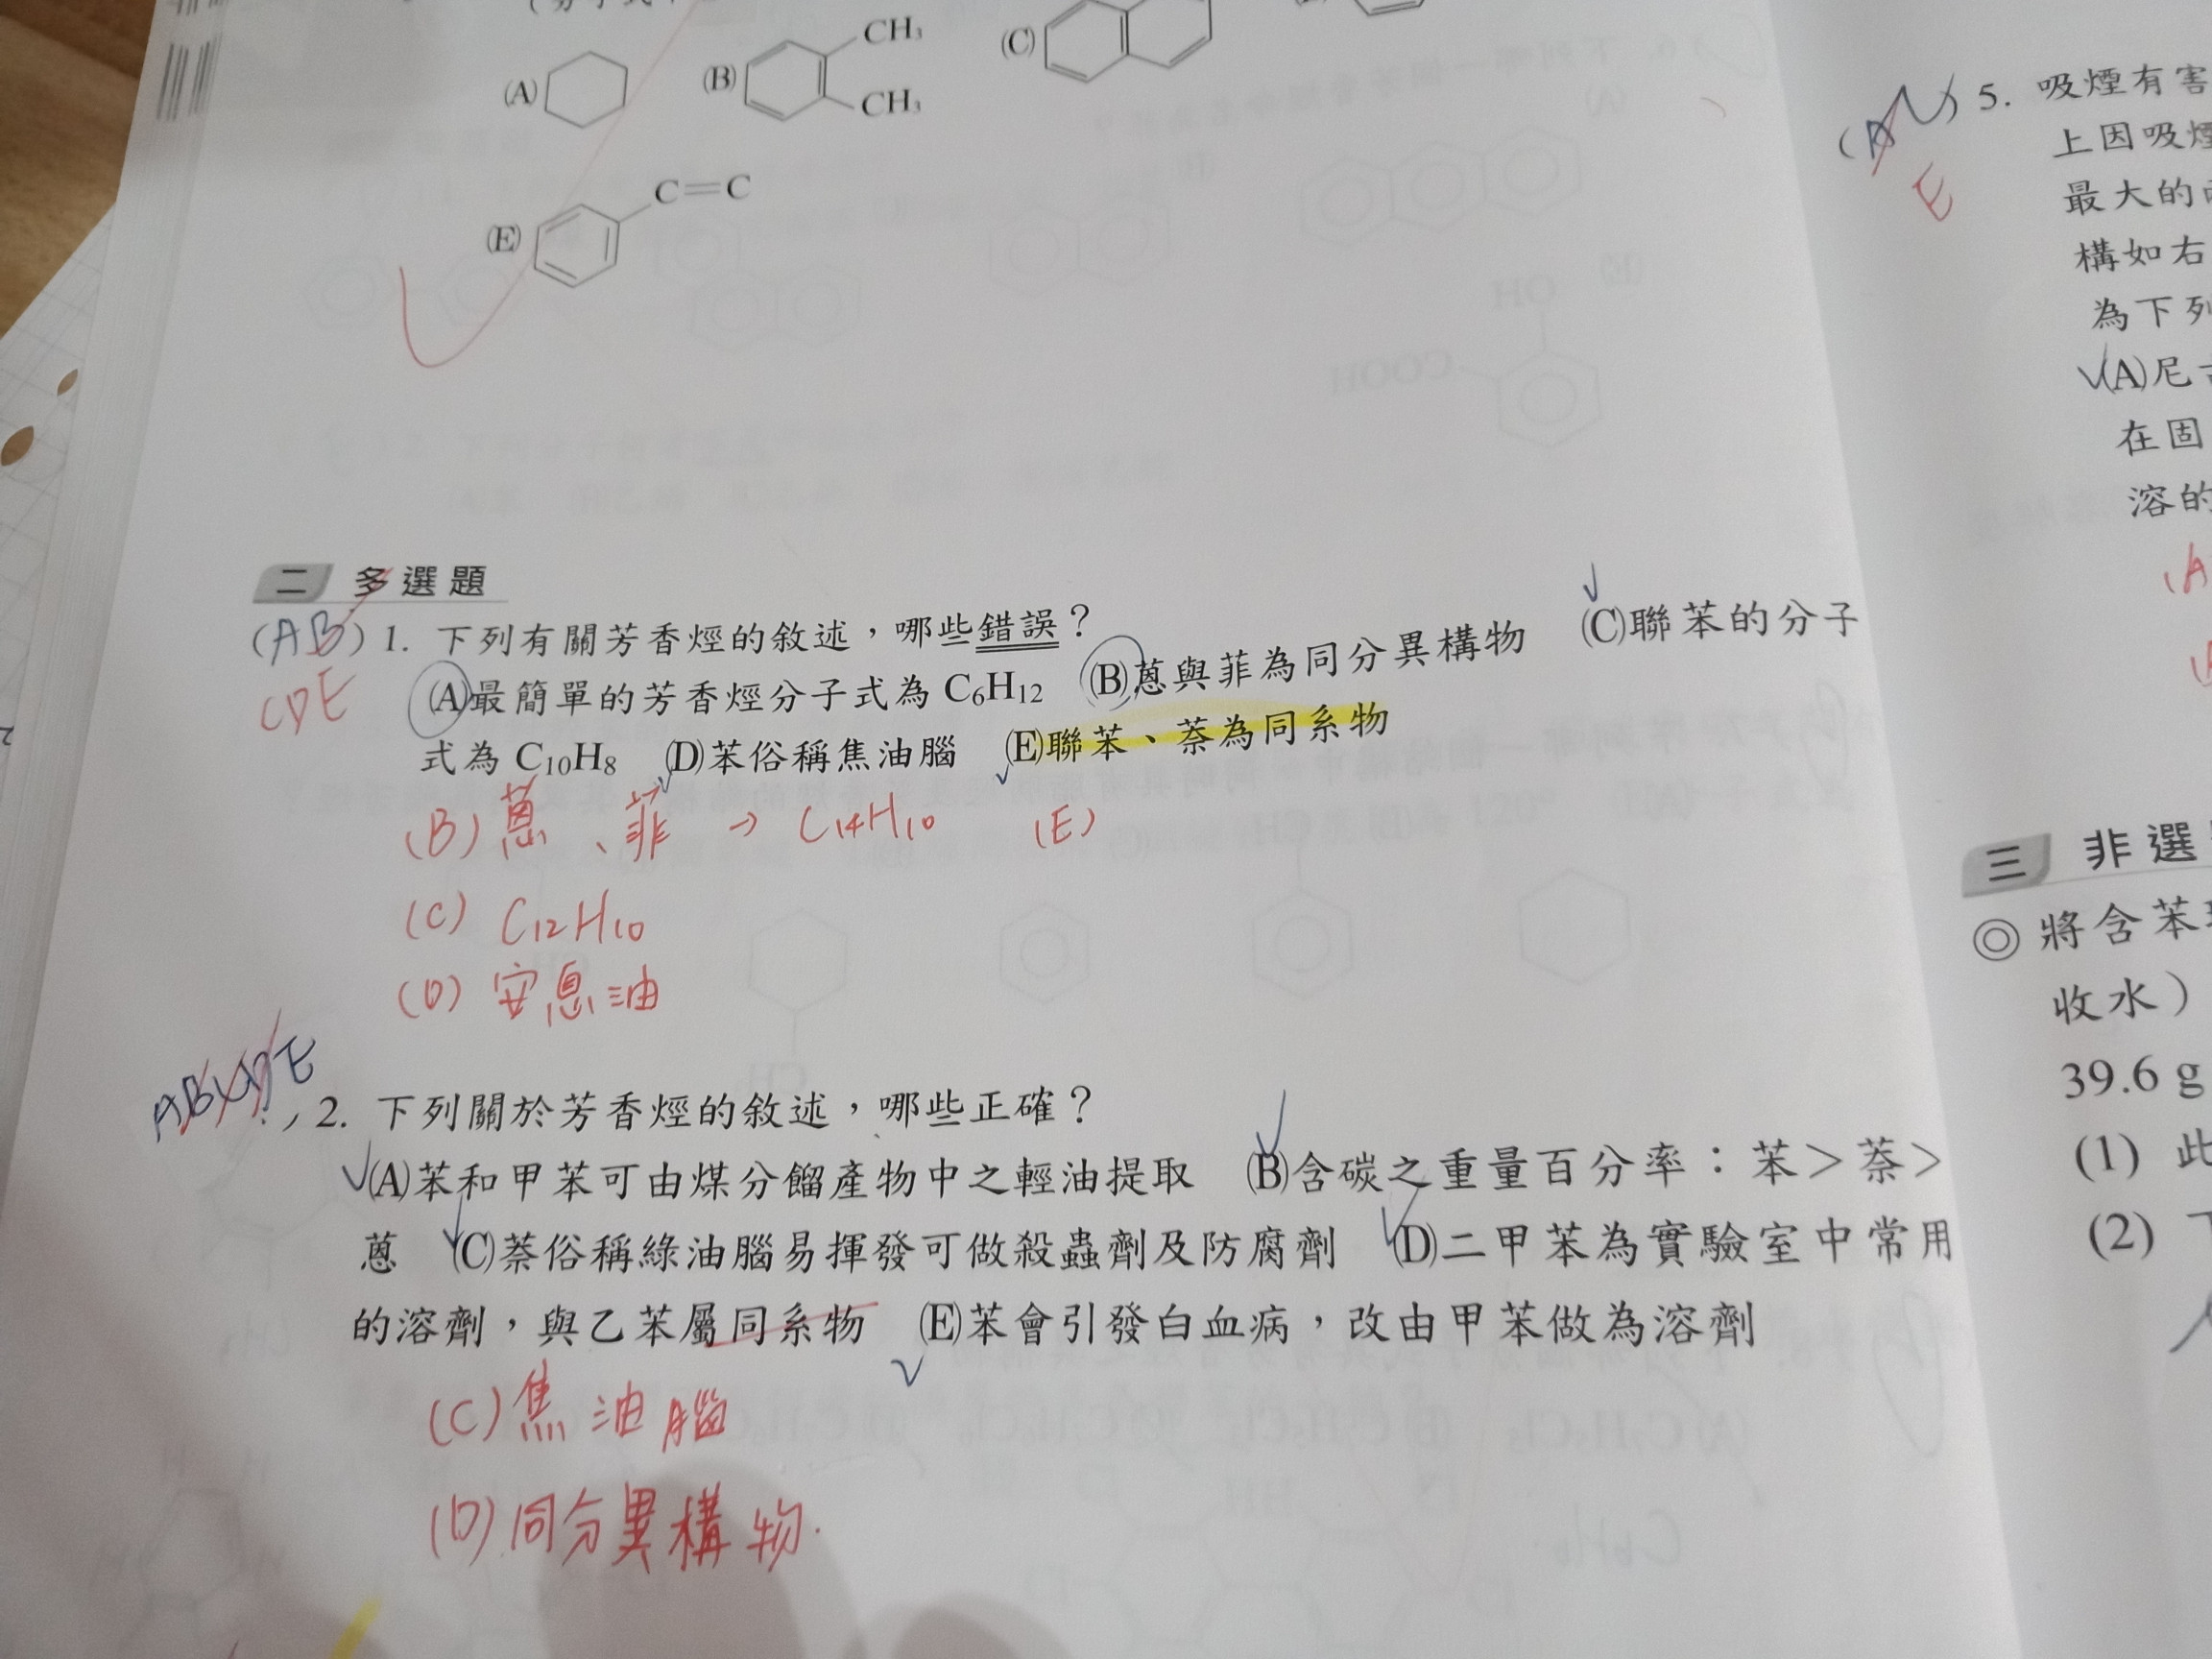 (分子式
(A)
(B) CH₃
CH₃
(C)
(E) C=C
二 多選題
(AB) 1. 下列有關芳香烴的敘述，哪些錯誤？
CDE
(A)最簡單的芳香烴分子式為 C₆H₁₂ (B)蒽與菲為同分異構物 (C)聯苯的分子
式為 C₁₀H₈ (D)苯俗稱焦油腦 (E)聯苯、萘為同系物
(B) 蒽、菲 → C₁₄H₁₀ (E)
(C) C₁₂H₁₀
(D) 安息油
ABCDE
2. 下列關於芳香烴的敘述，哪些正確？
(A)苯和甲苯可由煤分餾產物中之輕油提取 (B)含碳之重量百分率：苯＞萘＞
蒽 (C)萘俗稱綠油腦易揮發可做殺蟲劑及防腐劑 (D)二甲苯為實驗室中常用
的溶劑，與乙苯屬同系物 (E)苯會引發白血病，改由甲苯做為溶劑
(C) 焦油腦
(D) 同分異構物.
(A) 5. 吸煙有害
E
上因吸煙
最大的
構如右
為下列
(A)尼古
在固
溶的
(A
三 非選
◎ 將含苯
收水）
39.6 g
(1) 此
(2) 下